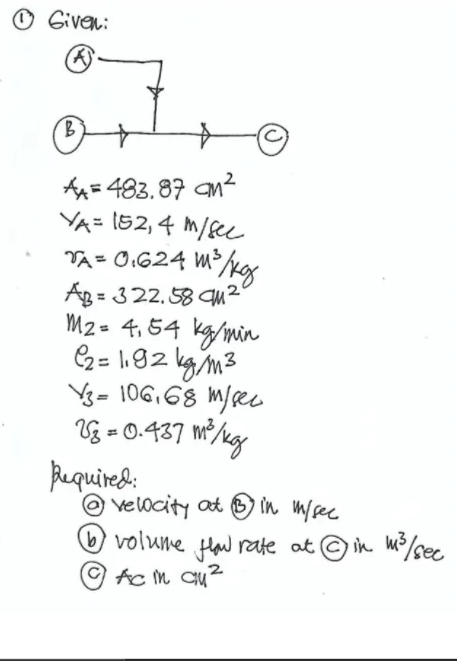 ① Given:
A
B
C
A_A = 483.87 cm²
V_A = 152,4 m/sec
v_A = 0.624 m³/kg
A_B = 322.58 cm²
m₂ = 4,54 kg/min
ρ₂ = 1.92 kg/m³
V₃ = 106,68 m/sec
v₃ = 0.437 m³/kg
Required:
ⓐ velocity at Ⓑ in m/sec
ⓑ volume flow rate at Ⓒ in m³/sec
ⓒ Ac in cm²